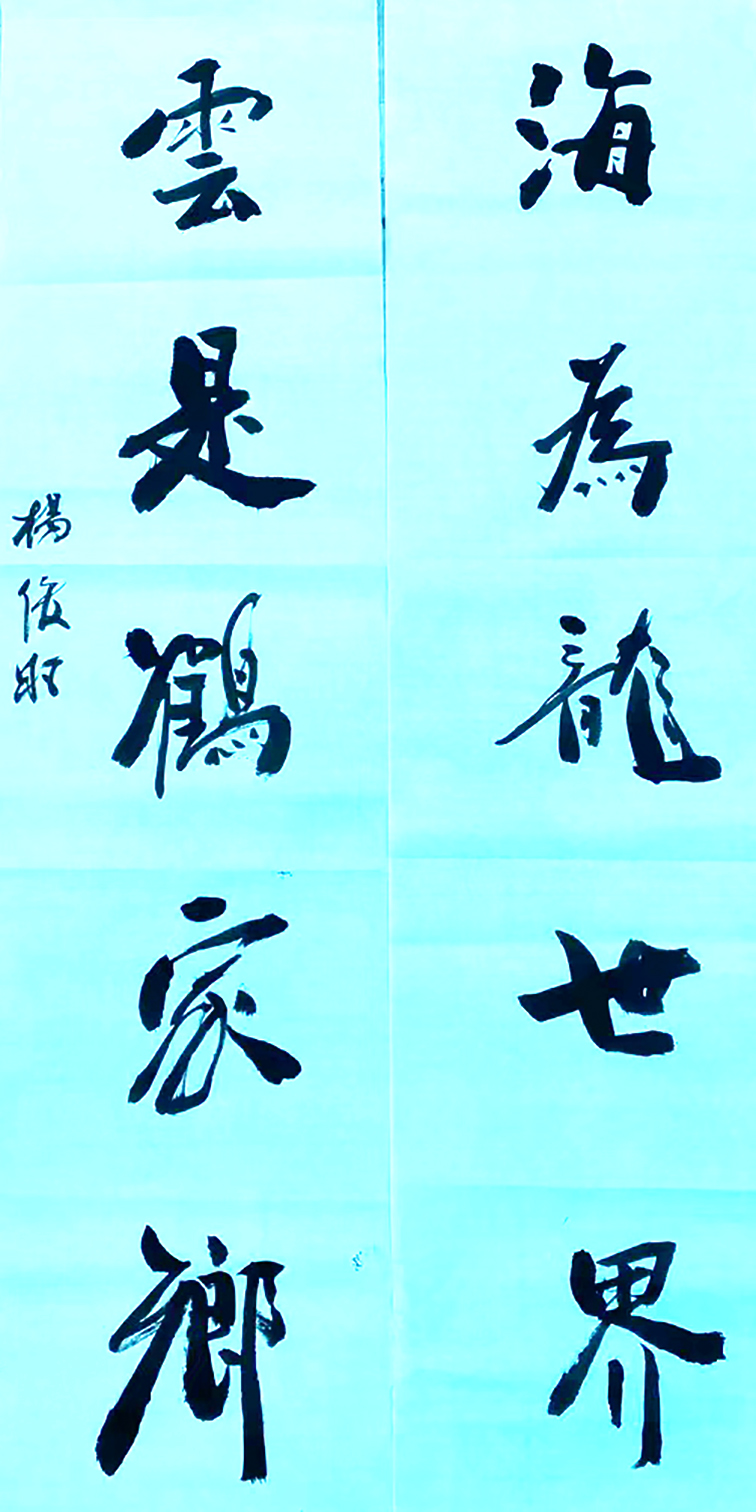 海為龍世界
雲是鶴家鄉
楊俊旺